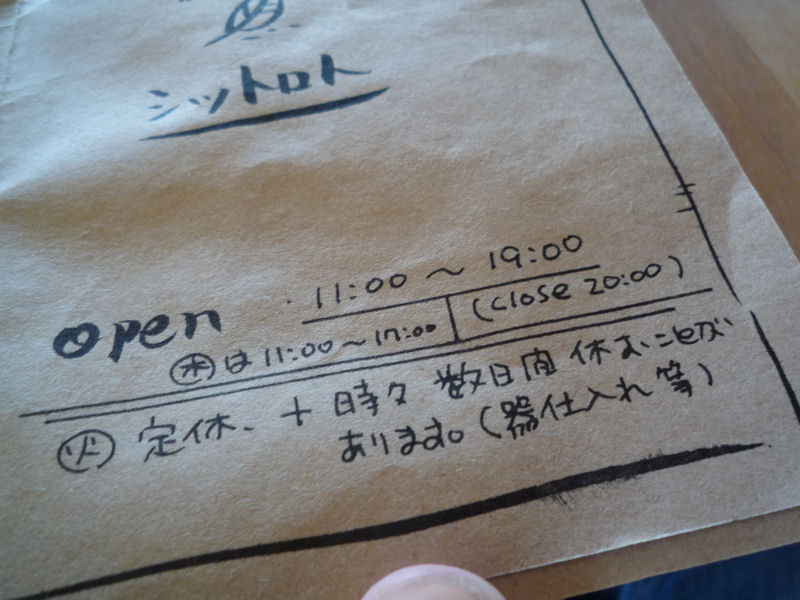 シットロト
open 11:00 〜 19:00
(close 20:00)
㊌は 11:00〜17:00
㊋ 定休、+ 時々 数日間 休むことが
あります。(器仕入れ 等)